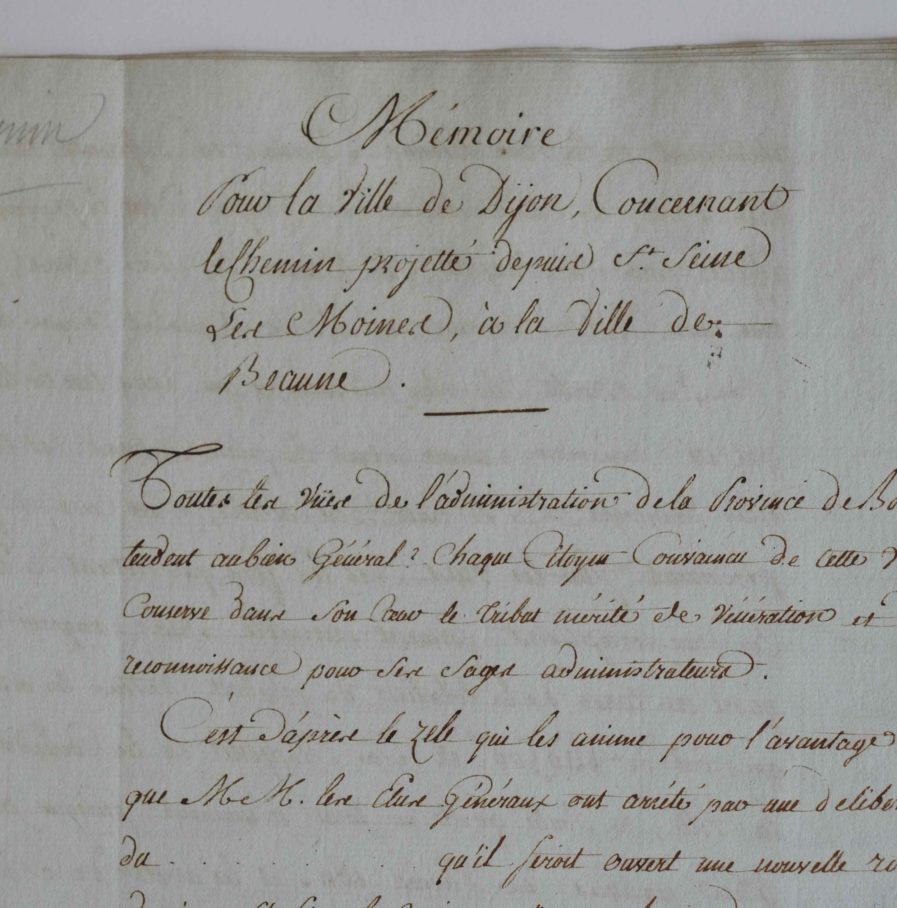 Mémoire
Pour la Ville de Dijon, Concernant
le Chemin projetté depuis St. Seine
Les Moines, à la Ville de
Beaune.
Toutes les Vües de l'administration de la Province de Bo
tendent au bien Général? Chaque Citoyen Convaincu de cette
Conserve dans son Cœur le tribut mérité de Vénération et
reconnoissance pour ses sages administrateurs.
C'est d'après le zele qui les anime pour l'avantage
que M M. les Elus Généraux ont arrété par une deliber
du . . . . . . . . . qu'il seroit ouvert une nouvelle ro